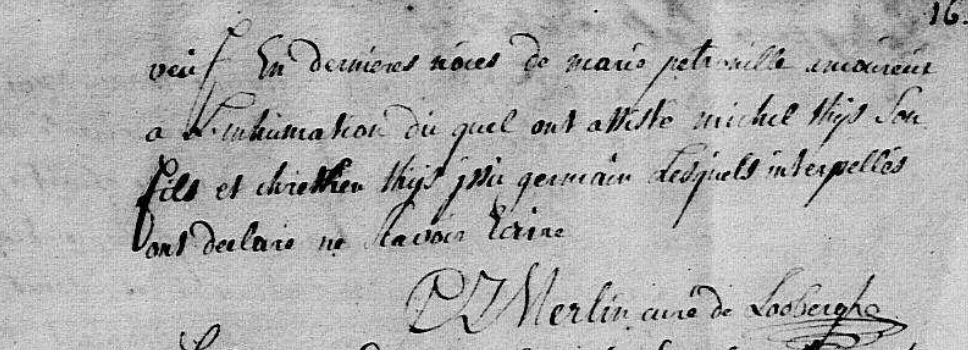 16.
veuf En dernieres nôces de marie petronille
a L'inhumation du quel ont assisté michel thijs Son
fils et chretien thijs issu germain Lesquels interpellés
ont declaré ne scavoir Ecrire
P J Merlin curé de Looberghe